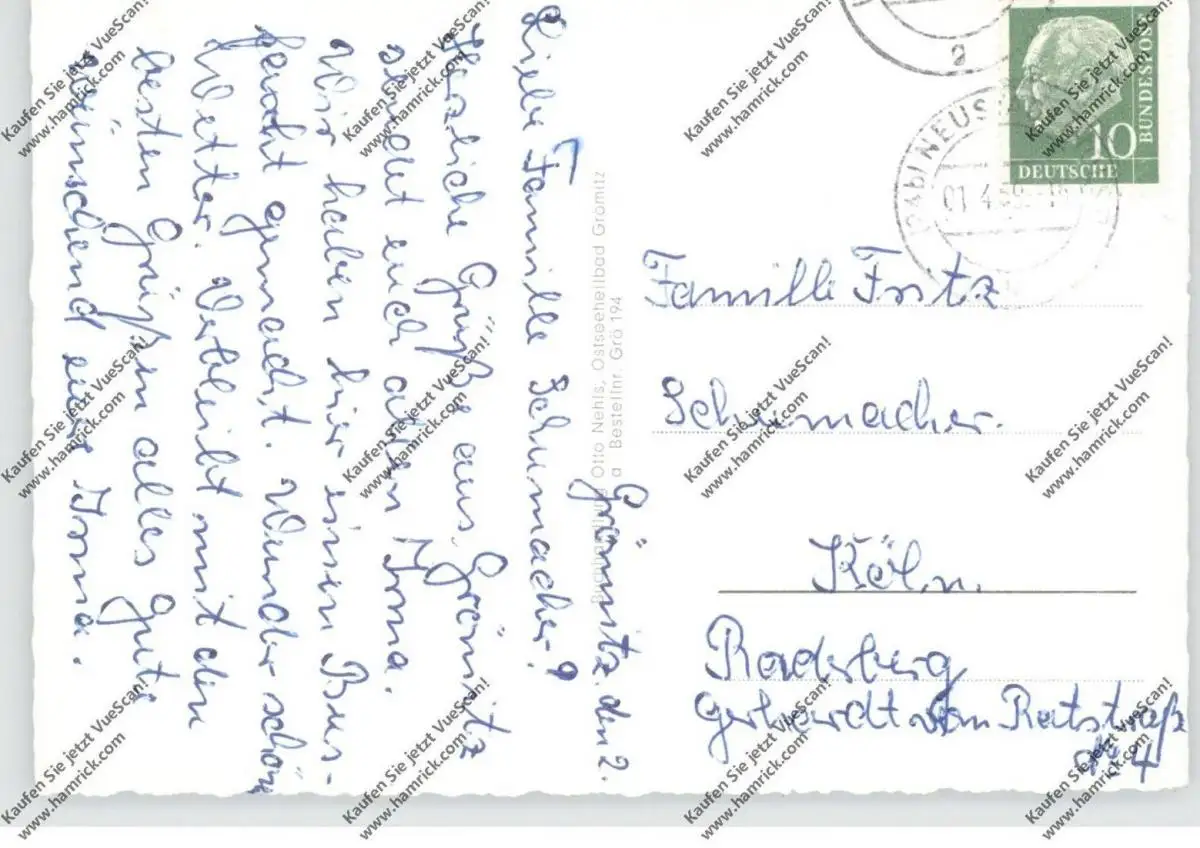 Grömitz. den 2.
Liebe Familie Schumacher!
Herzliche Grüße aus Grömitz
sendet euch allen Irma.
Wir haben hier einen Bus-
gemacht. Wunder schön
Wetter. Verbleibt mit den
besten Grüßen alles gute
wünschend eure Irma.
Otto Nehls, Ostseeheilbad Grömitz
a Bestellnr. Grö 194
NEUS
01.4.59
a
10
DEUTSCHE
BUNDESPOST
Familie Fritz
Schumacher.
Köln.
Raderberg
Gerhardt von Ratstraße
Nr 4
Kaufen Sie jetzt VueScan!
www.hamrick.com